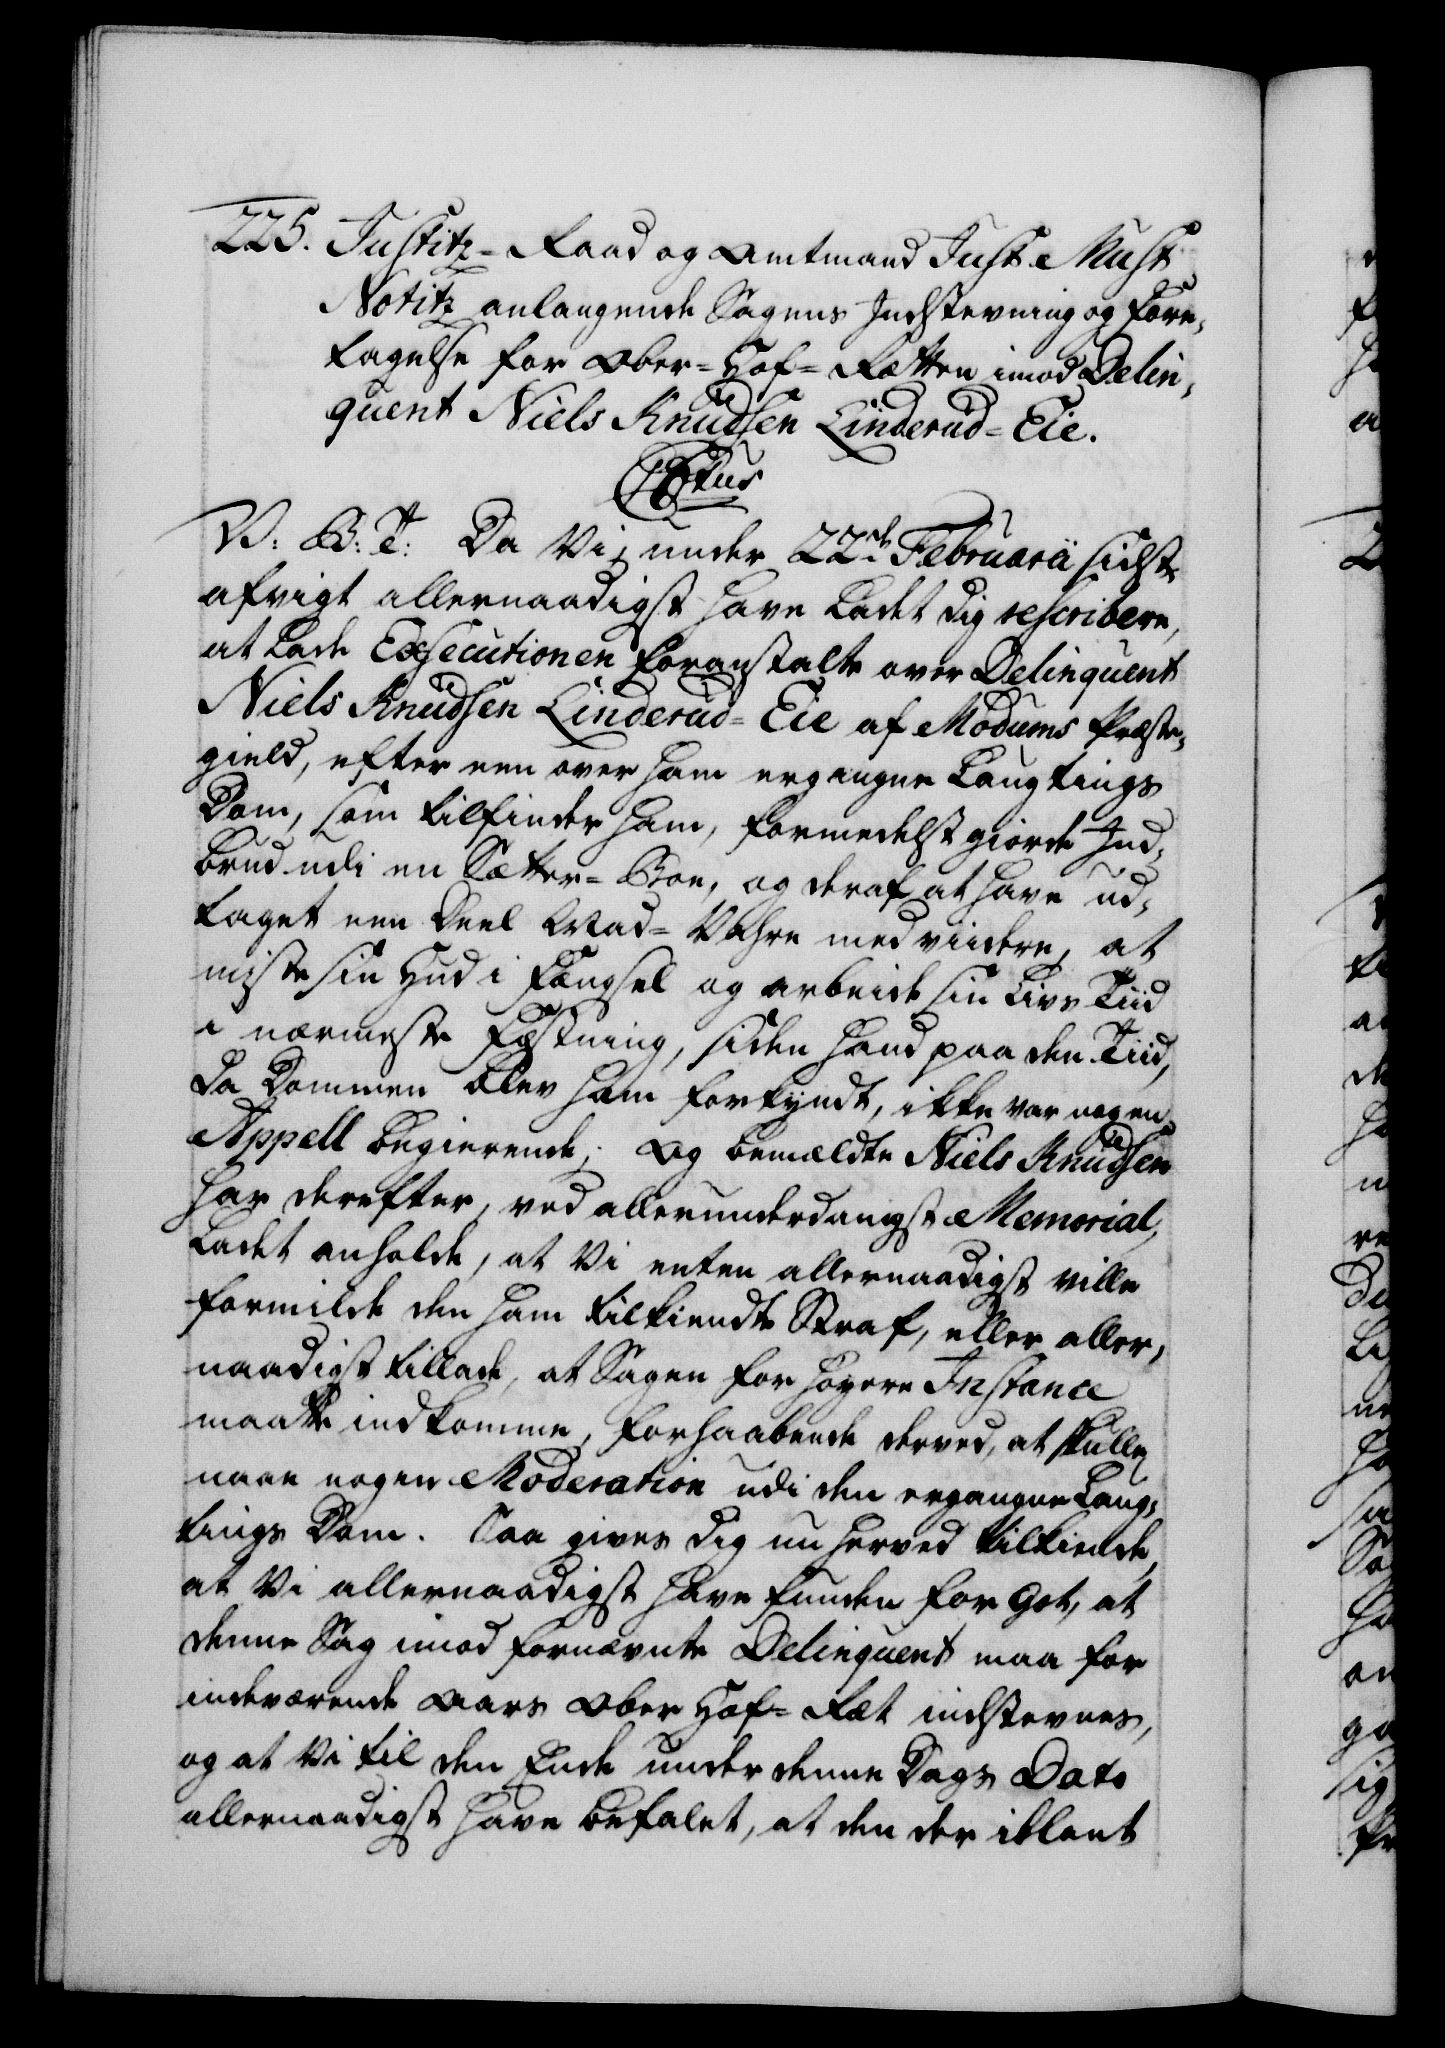 225. Justitz-Raad og Amtmand Just Must
Notitz anlangende Sagens Indstevning og Fore-
tagelse for Ober-Hof-Rætten imod Delin-
quent Niels Knudsen Linderud-Eie.
V: G: T: Da Vi under 22de Februarii sidst
afvigt allernaadigst have Ladet dig rescribere,
at Lade Executionen foranstalte over Delinquent
Niels Knudsen Linderud-Eie af Modums Præste-
gield, efter een over ham ergangne Laugtings
Dom, som tilfinder ham, formedelst giorde Ind-
brud udi en Sætter-Boe, og deraf at have ud-
taget een Deel Mad-Vahre med viidere, at
miste sin Hud i Fængsel og arbeide sin Livs Tiid
i nærmeste Fæstning, siden hand paa den Tiid,
da Dommen blev ham forkyndt, ikke var nogen
Appell begierende; Og bemældte Niels Knudsen
har derefter, ved allerunderdanigst Memorial,
Ladet anholde, at Vi enten allernaadigst ville
formilde den ham tilkiendte Straf, eller aller-
naadigst tillade, at Sagen for høyere Instance
maatte indkomme, forhaabende derved, at skulle
naae nogen Moderation udi den ergangne Laug-
tings Dom. Saa gives dig nu herved tilkiende,
at Vi allernaadigst have funden for got, at
denne Sag imod fornævnte Delinquent maa for
indeværende Aars Ober Hof-Ræt indstevnes,
og at Vi til den Ende under denne Dags Dato
allernaadigst have befalet, at den der iblant